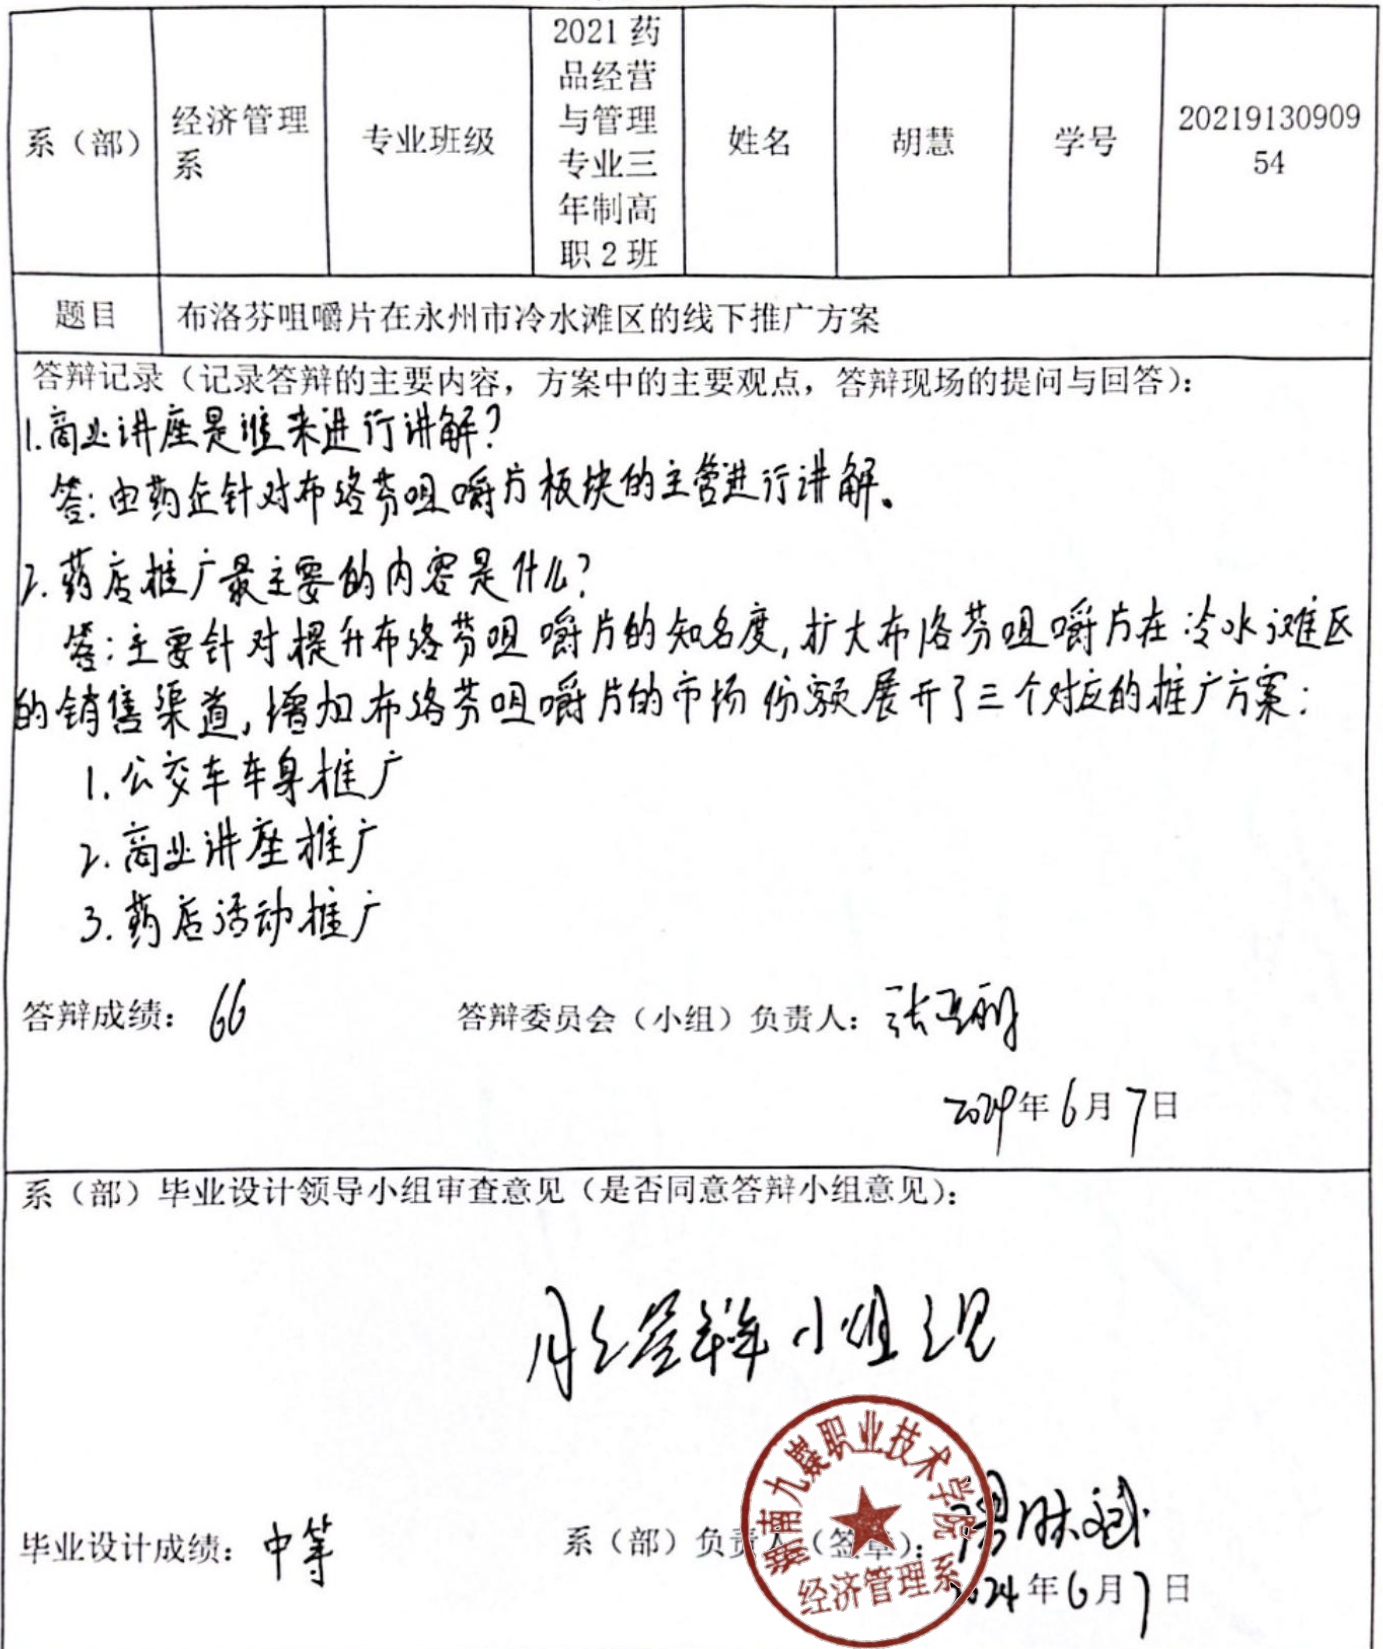 系（部）
经济管理
系
专业班级
2021 药
品经营
与管理
专业三
年制高
职 2 班
姓名
胡慧
学号
20219130909
54
题目
布洛芬咀嚼片在永州市冷水滩区的线下推广方案
答辩记录（记录答辩的主要内容，方案中的主要观点，答辩现场的提问与回答）：
1.商业讲座是谁来进行讲解？
答：由药企针对布洛芬咀嚼片板块的主管进行讲解。
2.药店推广最主要的内容是什么？
答：主要针对提升布洛芬咀嚼片的知名度，扩大布洛芬咀嚼片在冷水滩区
的销售渠道，增加布洛芬咀嚼片的市场份额展开了三个对应的推广方案：
1.公交车车身推广
2.商业讲座推广
3.药店活动推广
答辩成绩： 66 答辩委员会（小组）负责人：
2024年6月7日
系（部）毕业设计领导小组审查意见（是否同意答辩小组意见）：
同意答辩小组意见
毕业设计成绩：中等 系（部）负责人（签章）：
湖南九嶷职业技术学院
经济管理系
2024年6月7日